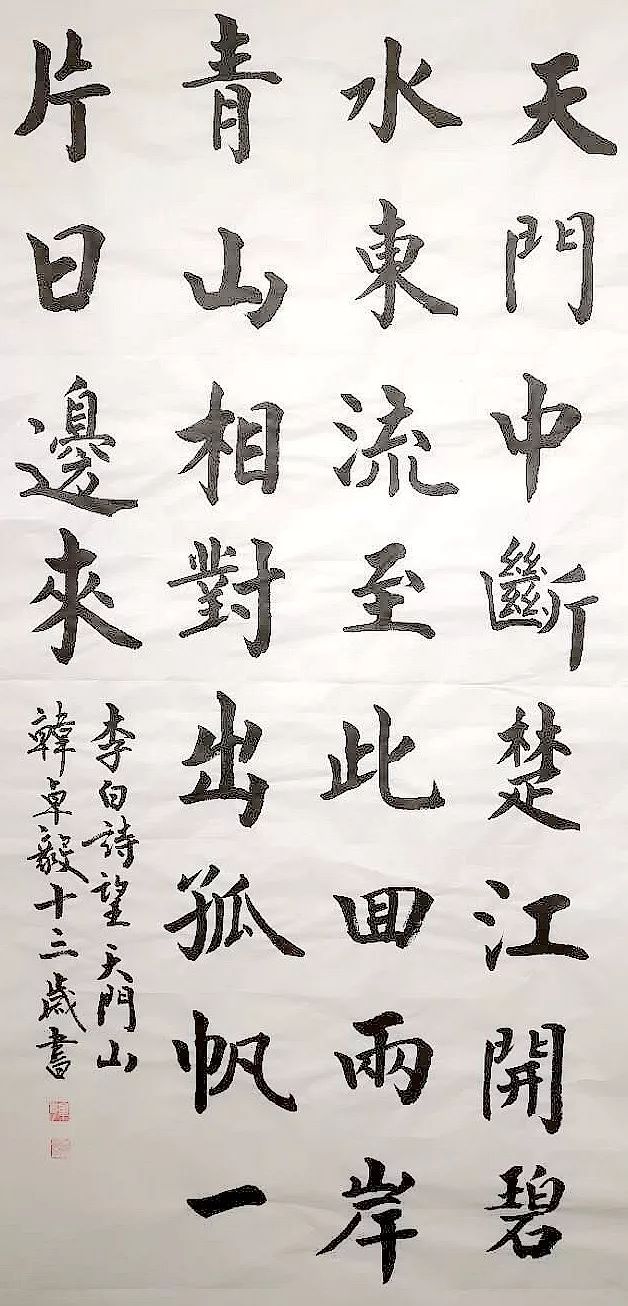 天門中斷楚江開碧
水東流至此回兩岸
青山相對出孤帆一
片日邊來
李白詩望天門山
韓卓毅十三歲書